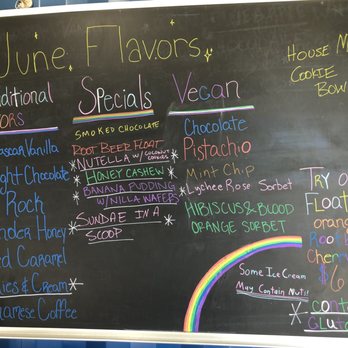 June Flavors
Specials
SMOKED CHOCOLATE
ROOT BEER FLOAT
*NUTELLA W/COCONUT COOKIES
*HONEY CASHEW*
BANANA PUDDING
W/NILLA WAFERS*
*SUNDAE IN A
SCOOP
Vegan
Chocolate
Pistachio
Mint Chip
*Lychee Rose Sorbet
HIBISCUS & BLOOD
ORANGE SORBET
Some Ice Cream
May Contain Nuts!
ditional
ORS
ascar Vanilla
ght Chocolate
Rock
nder Honey
ed Caramel
ies & Cream*
namese Coffee
HOUSE M
COOKIE
BOW
TRY O
FLOAT
oran
Root B
Cherr
$6
*cont
GLUT